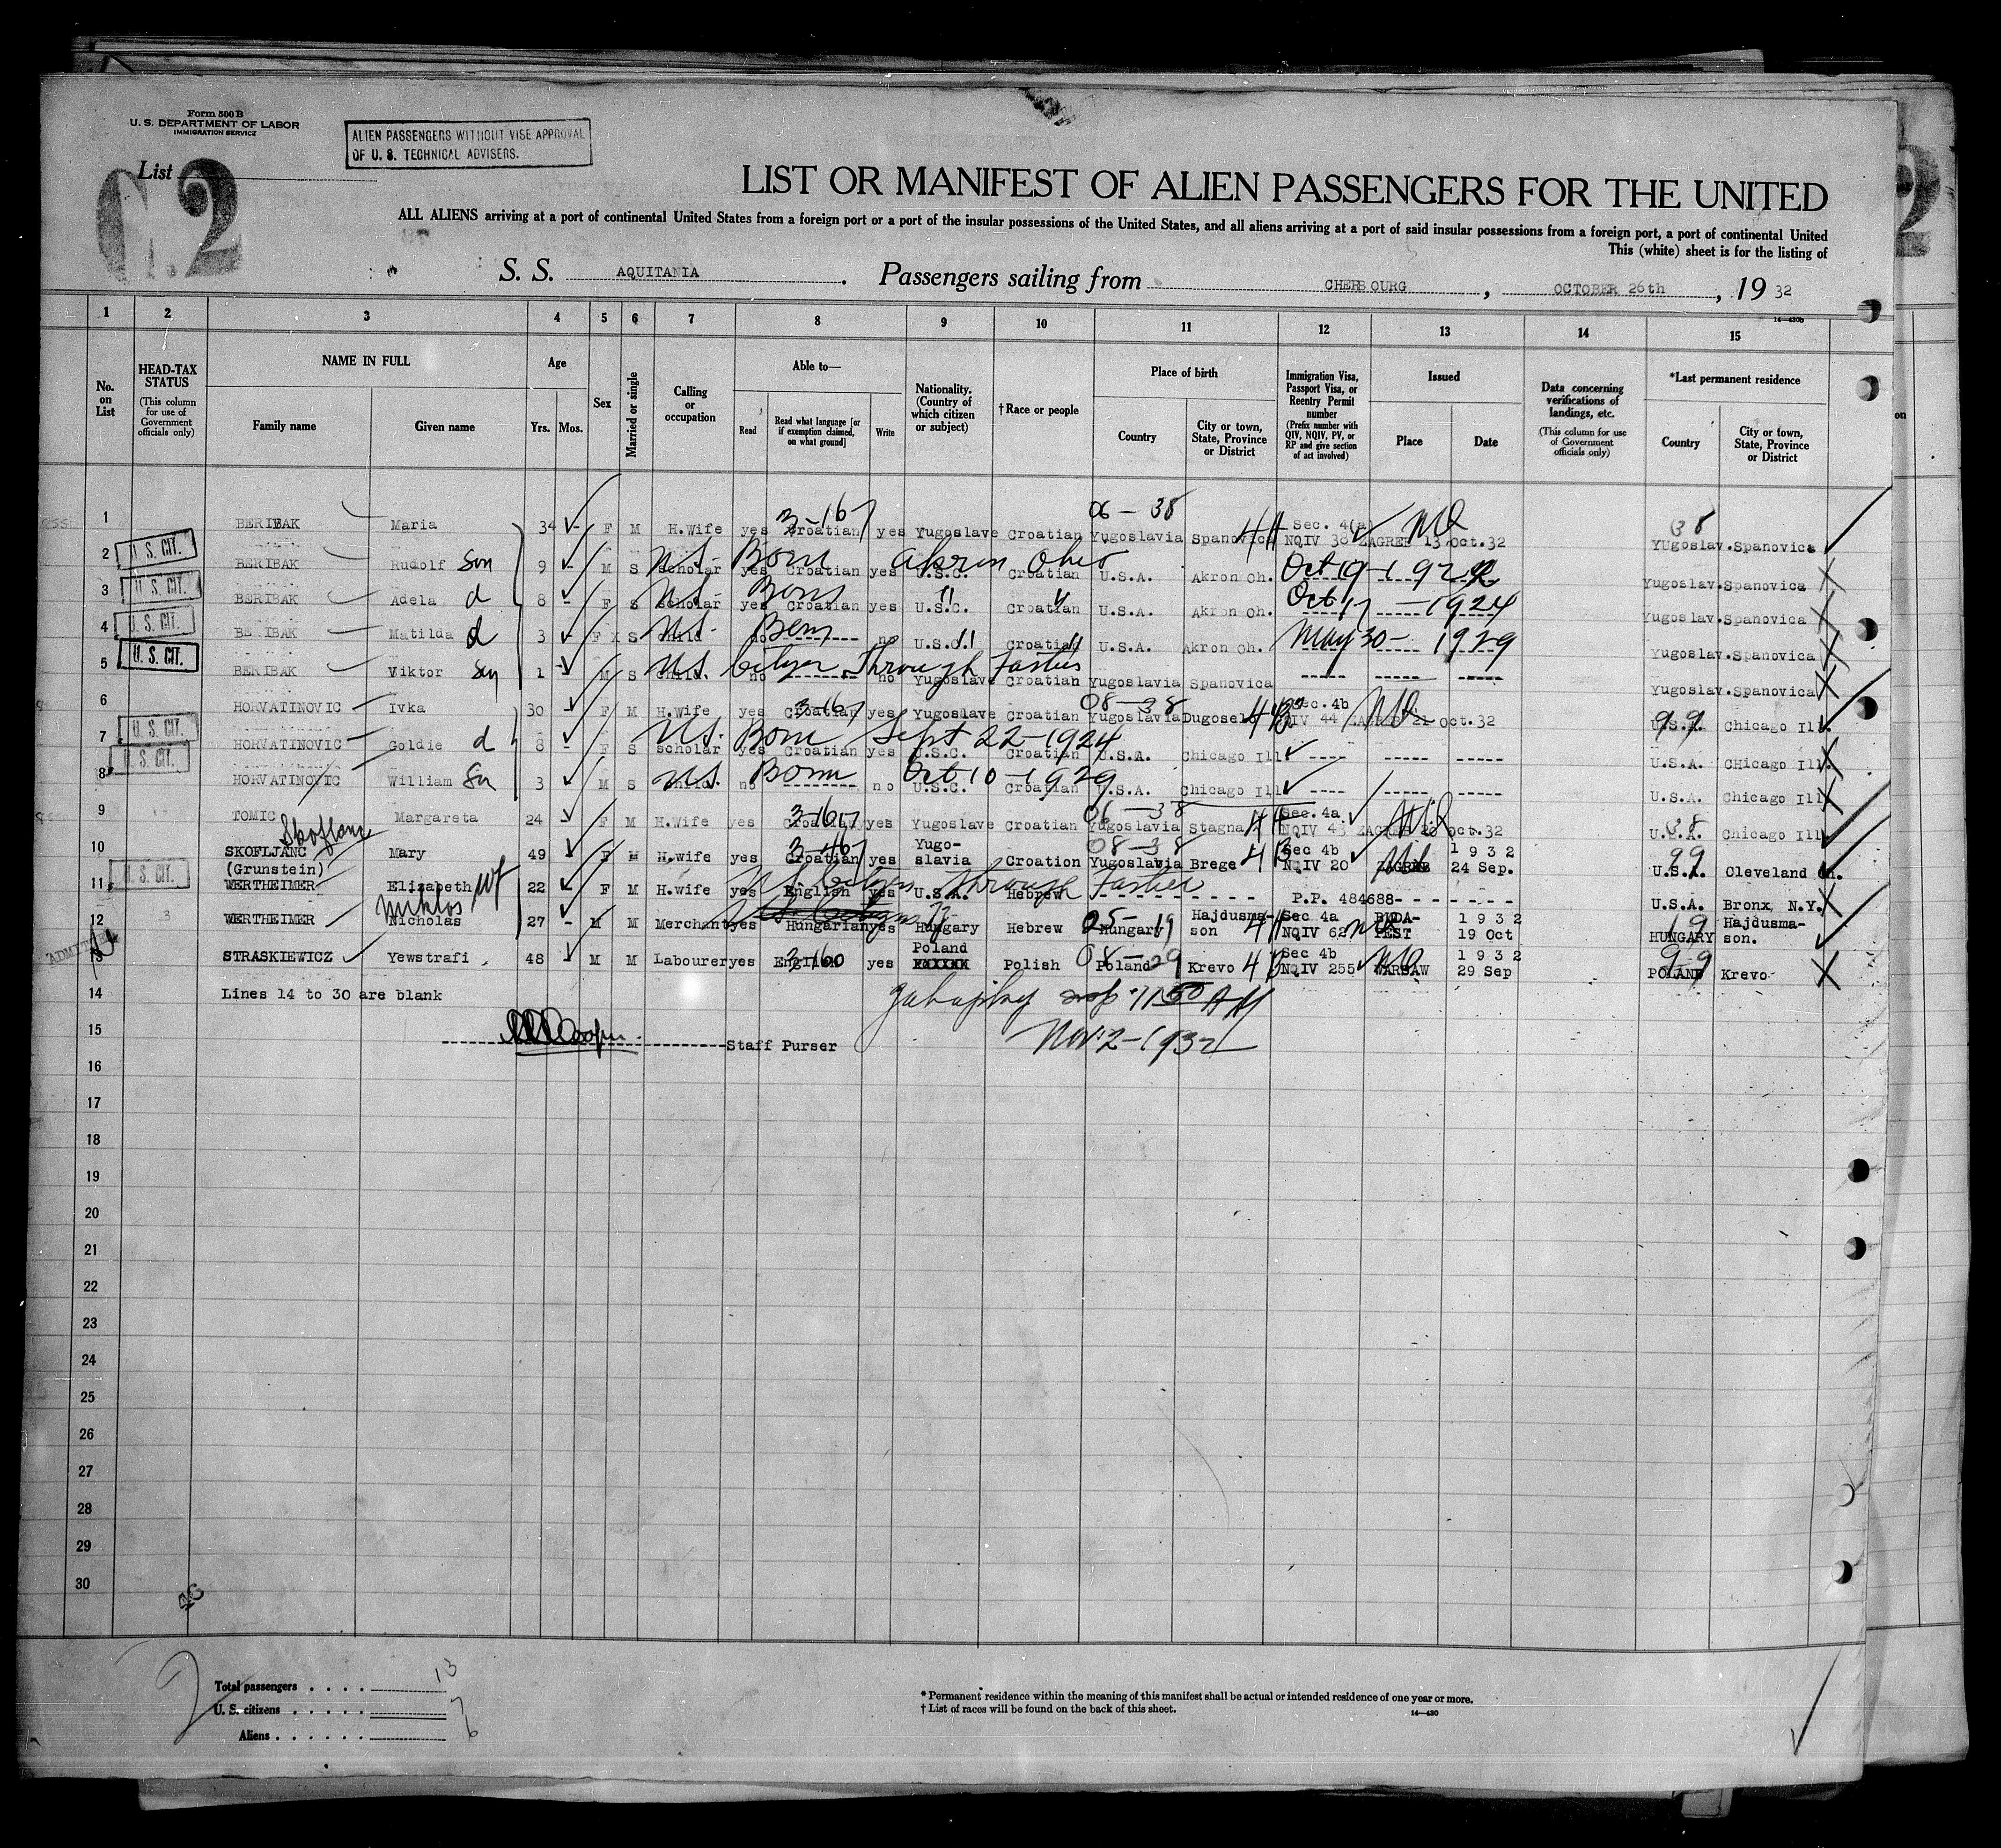 Form 500 B
U. S. DEPARTMENT OF LABOR
IMMIGRATION SERVICE
ALIEN PASSENGERS WITHOUT VISE APPROVAL
OF U. S. TECHNICAL ADVISERS.
List
2
LIST OR MANIFEST OF ALIEN PASSENGERS FOR THE UNITED
ALL ALIENS arriving at a port of continental United States from a foreign port or a port of the insular possessions of the United States, and all aliens arriving at a port of said insular possessions from a foreign port, a port of continental United
This (white) sheet is for the listing of
S. S. AQUITANIA. Passengers sailing from CHERBOURG, OCTOBER 26th, 19 32
14—430b
1 2 3 4 5 6 7 8 9 10 11 12 13 14 15
No. on List
HEAD-TAX STATUS
(This column for use of Government officials only)
NAME IN FULL
Family name Given name
Age
Yrs. Mos.
Sex
Married or single
Calling or occupation
Able to—
Read Read what language [or if exemption claimed, on what ground] Write
Nationality. (Country of which citizen or subject)
† Race or people
Place of birth
Country City or town, State, Province or District
Immigration Visa, Passport Visa, or Reentry Permit number
(Prefix number with QIV, NQIV, PV, or RP and give section of act involved)
Issued
Place Date
Data concerning verifications of landings, etc.
(This column for use of Government officials only)
*Last permanent residence
Country City or town, State, Province or District
3-167 06-38 38
1 BERIBAK Maria 34 - F M H.Wife yes Croatian yes Yugoslave Croatian Yugoslavia Spanovica Sec. 4(a) NQIV 38 ZAGREB 13 Oct.32 YUgoslav. Spanovica
U.S. Born Akron Ohio Oct 19-192
2 U. S. CIT. BERIBAK Rudolf son 9 - M S scholar yes Croatian yes U.S.C. Croatian U.S.A. Akron Oh. ----- ----- ----- Yugoslav. Spanovica
U.S. Born " " Oct 17 - 1924
3 U. S. CIT. BERIBAK Adela d 8 - F S scholar yes Croatian yes U.S.C. Croatian U.S.A. Akron Oh. ----- ----- ----- Yugoslav. Spanovica
U.S. Born " " May 30 - 1929
4 U. S. CIT. BERIBAK Matilda d 3 - F S Child. no --------- no U.S.C. Croatian U.S.A. Akron Oh. ----- ----- Yugoslav. Spanovica
U.S. Citizen Through Father
5 U. S. CIT. BERIBAK Viktor son 1 - M S Child. no --------- no Yugoslave Croatian Yugoslavia Spanovica ----- ----- ----- Yugoslav. Spanovica
3-167 08-38 99
6 HORVATINOVIC Ivka 30 - F M H.Wife yes Croatian yes Yugoslave Croatian Yugoslavia Dugoselo Sec. 4b NQIV 44 ZAGREB 21 Oct.32 U.S.A. Chicago Ill.
U.S. Born Sept 22-1924
7 U. S. CIT. HORVATINOVIC Goldie d 8 - F S scholar yes Croatian yes U.S.C. Croatian U.S.A. Chicago Ill ---- ----- ----- U.S.A. CHicago Ill.
U.S. Born Oct 10-1929
8 U. S. CIT. HORVATINOVIC William Son 3 M S Child. no --------- no U.S.C. Croatian U.S.A. Chicago Ill ---- ----- ----- U.S.A. Chicago Ill
3-167 06-38 38
9 TOMIC Margareta 24 - F M H.Wife yes Croatian yes Yugoslave Croatian Yugoslavia Stagna Sec. 4a NQIV 43 ZAGREB 20 oct.32 U.S.A. Chicago Ill
3-167 08-38 99
10 SKOFLJANC Mary 49 F M H.wife yes Croatian yes Yugo-slavia Croation Yugoslavia Brege Sec 4b NQIV 20 ZAGREB 1932 24 Sep. U.S.A. Cleveland Oh.
(Grunstein)
U.S. Citizen Through Father
11 U. S. CIT. WERTHEIMER Elizabeth wf 22 F M H.wife yes English yes U.S.A. Hebrew - - - - - - P.P. 484688- - - - - - - U.S.A. Bronx, N.Y.
Miklos
12 WERTHEIMER Nicholas 27 - M M Merchant yes Hungarian yes Hungary Hebrew 05-19 Hungary Hajdusma-son Sec 4a NQIV 62 BUDA-PEST 1932 19 Oct 19 HUNGARY Hajdusma-son.
ADMITTED
13 STRASKIEWICZ Yewstrafi 48 M M Labourer yes English yes Poland XXXXXX Polish 08-29 Poland Krevo 4b Sec 4b NQIV 255 WARSAW 1932 29 Sep 99 POLAND Krevo
14 Lines 14 to 30 are blank
11 50 AM
15 Staff Purser
Nov. 2-1932
16
17
18
19
20
21
22
23
24
25
26
27
28
29
30
Total passengers . . . . 13
U. S. citizens . . . . . 7
Aliens . . . . . . 6
* Permanent residence within the meaning of this manifest shall be actual or intended residence of one year or more.
† List of races will be found on the back of this sheet.
14—430